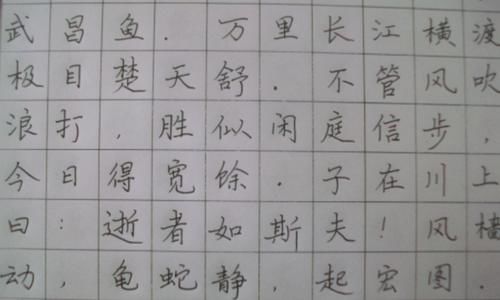 武昌鱼.万里长江横渡
极目楚天舒.不管风吹
浪打,胜似闲庭信步,
今日得宽馀.子在川上
曰:逝者如斯夫!风樯
动,龟蛇静,起宏图.